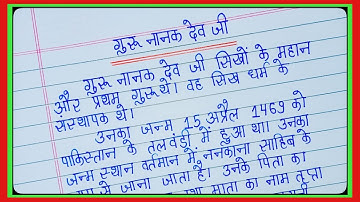 गुरु नानक देव जी
गुरु नानक देव जी सिखों के महान
और प्रथम गुरु थे। वह सिख धर्म के
संस्थापक थे।
उनका जन्म 15 अप्रैल 1469 को
पाकिस्तान के तलवंडी में हुआ था। उनका
जन्म स्थान वर्तमान में ननकाना साहिब के
नाम से जाना जाता है। उनके पिता का
तथा माता का नाम तृप्ता